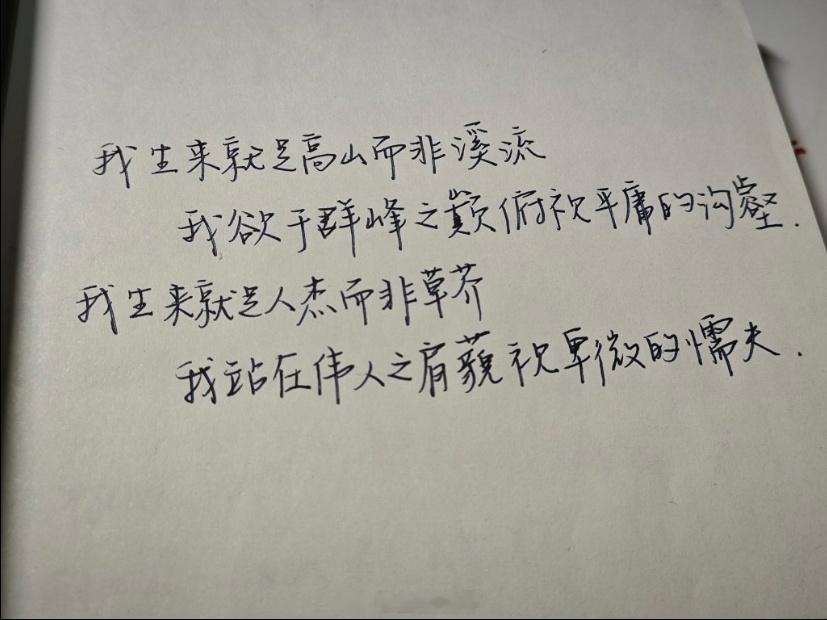 我生来就是高山而非溪流
我欲于群峰之巅俯视平庸的沟壑.
我生来就是人杰而非草芥
我站在伟人之肩藐视卑微的懦夫.